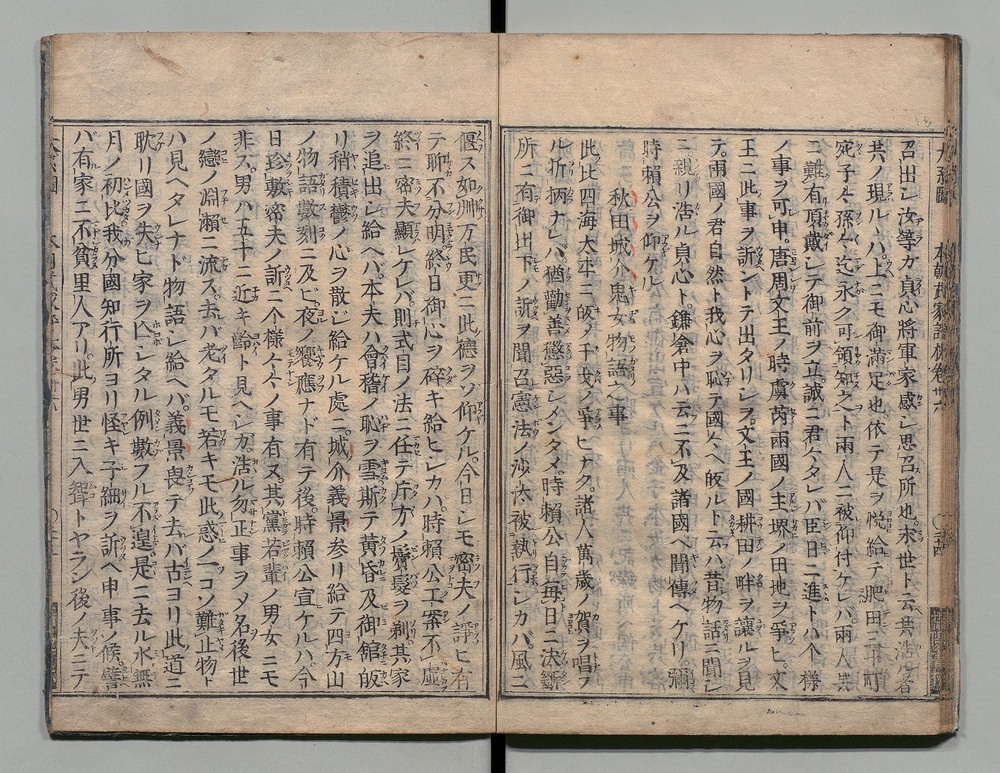 召出シ汝等カ貞心將軍家感シ思召所也末世ト云共浩ル者
共ノ現ルヽハ上ニモ御滿足也依テ是ヲ悦給テ肥田三
宛子々孫々迄永ク可領知ストト兩人ニ被仰付ケレバ兩人
二難有頂戴シテ御前ヲ立誠ニ君々タレバ臣日ニ進トハ个樣
ノ事ヲ可申唐周文王ノ時虞芮兩國ノ主堺ノ田地ヲ爭ヒ文
王ニ此事ヲ訴ントテ出タリシヲ文王ノ國耕田ノ畔ヲ讓ルヲ見
テ兩國ノ君自然ト我心ヲ恥テ國々ヘ皈ルト云ハ昔物話ニ聞シ
ニ親リ浩ル貞心ト鎌倉中ハ云ニ不及諸國ヘ聞傳ヘケリ彌
時賴公ヲ仰ケル
秋田城介鬼女物語之事
此比四海太平ニ皈ノ干戈ノ爭ヒナク諸人萬歳ノ賀ヲ唱フ
ル折柄ナレバ猶勸善懲惡シメンタメ時賴公自毎日ニ決斷
所ニ有御出下ノ訴ヲ聞召憲法ノ沙汰被執行シカバ風ニ
偃ス如洲万民更ニ此德ヲソ仰ケル今日シモ密夫ノ諍ヒ有
テ聊不分明終日御心ヲ碎キ給ヒシカハ時賴公工案不虚
終ニ密夫顯レケレバ則式目ノ法ニ任テ斤方ノ鬢髮ヲ剃其家
ヲ追出シ給ヘハ本夫ハ會稽ノ恥ヲ雪斯テ黄昏及御舘皈
リ稍積鬱ノ心ヲ散ジ給ケル處ニ城介義景参リ給テ四方山
ノ物語數刻ニ及ビ夜ノ饗應ナド有テ後時賴公宣ケルハ今
日珍敷密夫ノ訴ニ个樣々々ノ事有又其黨若輩ノ男女ニモ
非ス男ハ五十ニ近キ齡ト見ヘシカ浩ル勿正事ヲメ名後世
ノ戀ノ淵瀬ニ流ス去バ老タルモ若キモ此惑ノ一コソ難止物ト
ハ見ヘタレナド物語シ給ヘバ義景畏テ去バ古ヨリ此道ニ
耽リ國ヲ失ヒ家ヲ亡シタル例數フル不遑是ニ去ル水無
月ノ初比我分國知行所ヨリ怪キ子細ヲ訴ヘ申事ノ候譬
バ有家ニ不貧里人アリ此男世ニ入聟トヤラン後ノ夫ニテ